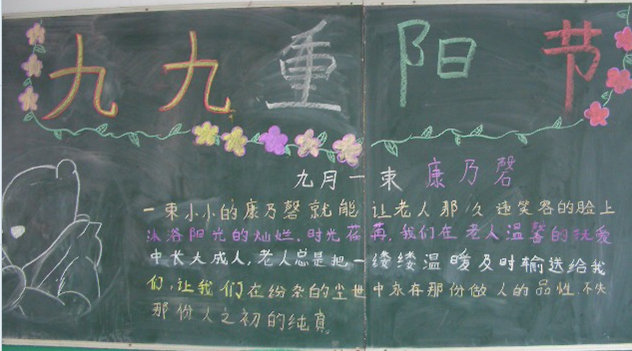 九九重阳节
九月一束 康乃馨
一束小小的康乃馨就能让老人那久违笑容的脸上
沐浴阳光的灿烂.时光荏苒,我们在老人温馨的抚爱
中长大成人,老人总是把一缕缕温暖及时输送给我
们,让我们在纷杂的尘世中永存那份做人的品性.不失
那份人之初的纯真。